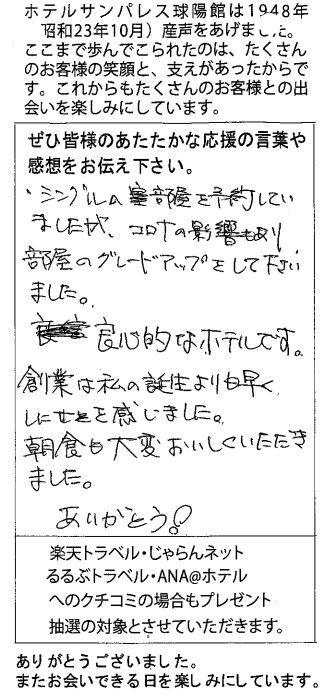 ホテルサンパレス球陽館は1948年
昭和23年10月）産声をあげました。
ここまで歩んでこられたのは、たくさん
のお客様の笑顔と、支えがあったからで
す。これからもたくさんのお客様との出
会いを楽しみにしています。
ぜひ皆様のあたたかな応援の言葉や
感想をお伝え下さい。
シングルの部屋を予約してい
ましたが、コロナの影響もあり
部屋のグレードアップをして下さい
ました。
良心的なホテルです。
創業は私の誕生よりも早く
しにせを感じました。
朝食も大変おいしくいただき
ました。
ありがとう!
楽天トラベル・じゃらんネット
るるぶトラベル・ANA@ホテル
へのクチコミの場合もプレゼント
抽選の対象とさせていただきます。
ありがとうございました。
またお会いできる日を楽しみにしています。